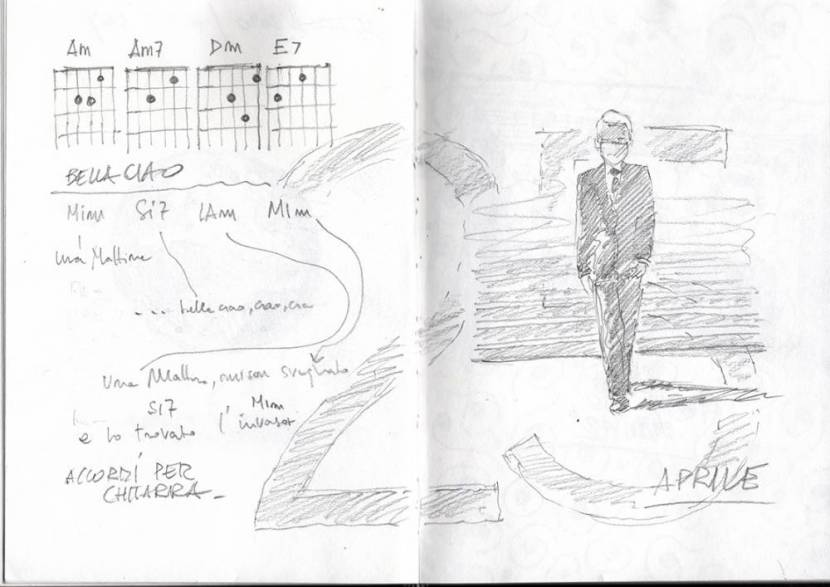 Am Am7 Dm E7
BELLA CIAO
Mim Si7 LAm Mim
Una Mattina
... bella ciao, ciao, ciao
una Mattina, mi son svegliato
Si7 Mim
e ho trovato l'invasor
ACCORDI PER
CHITARRA
25
APRILE